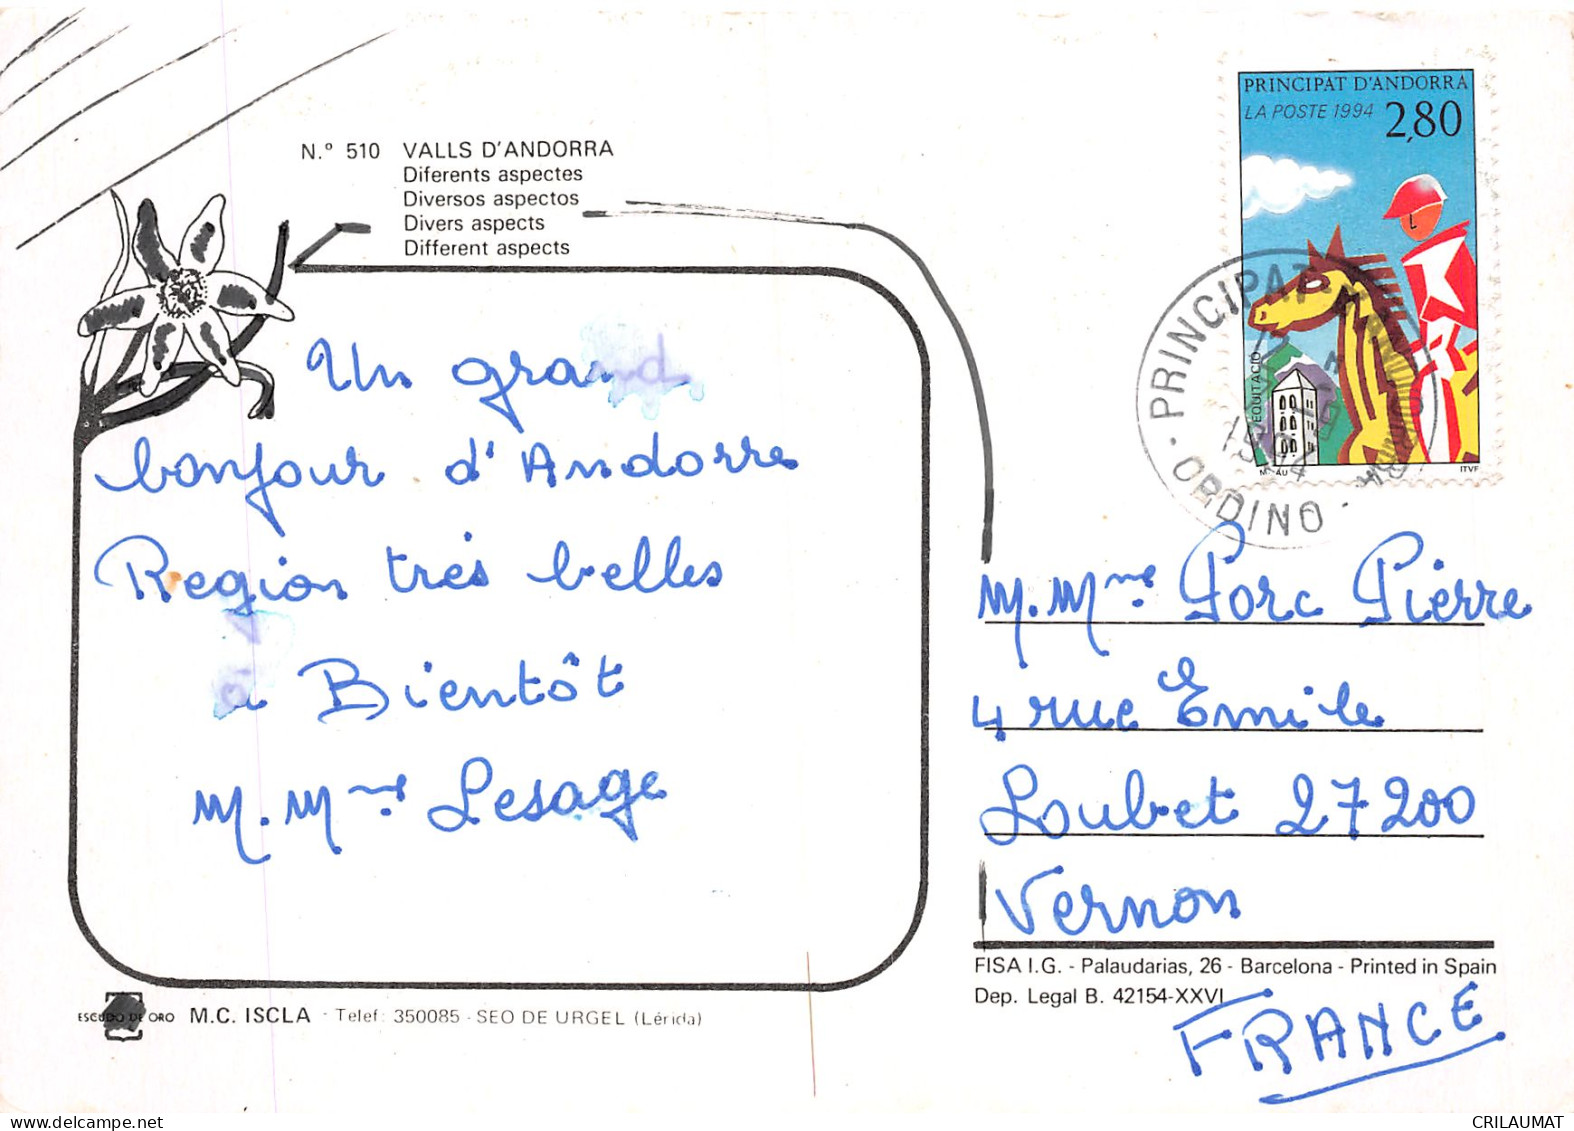 N.º 510 VALLS D'ANDORRA
Diferents aspectes
Diversos aspectos
Divers aspects
Different aspects
PRINCIPAT D'ANDORRA
LA POSTE 1994 2,80
EQUITACIÓ
ITVF
PRINCIPAT
ORDINO
Un grand
bonjour d'Andorre
Region très belles
à Bientôt
M. Mme Lesage
M. Mme Porc Pierre
4 rue Emile
Loubet 27200
Vernon
FRANCE
FISA I.G. - Palaudarias, 26 - Barcelona - Printed in Spain
Dep. Legal B. 42154-XXVI
ESCUDO DE ORO M.C. ISCLA - Telef: 350085 - SEO DE URGEL (Lérida)
CRILAUMAT